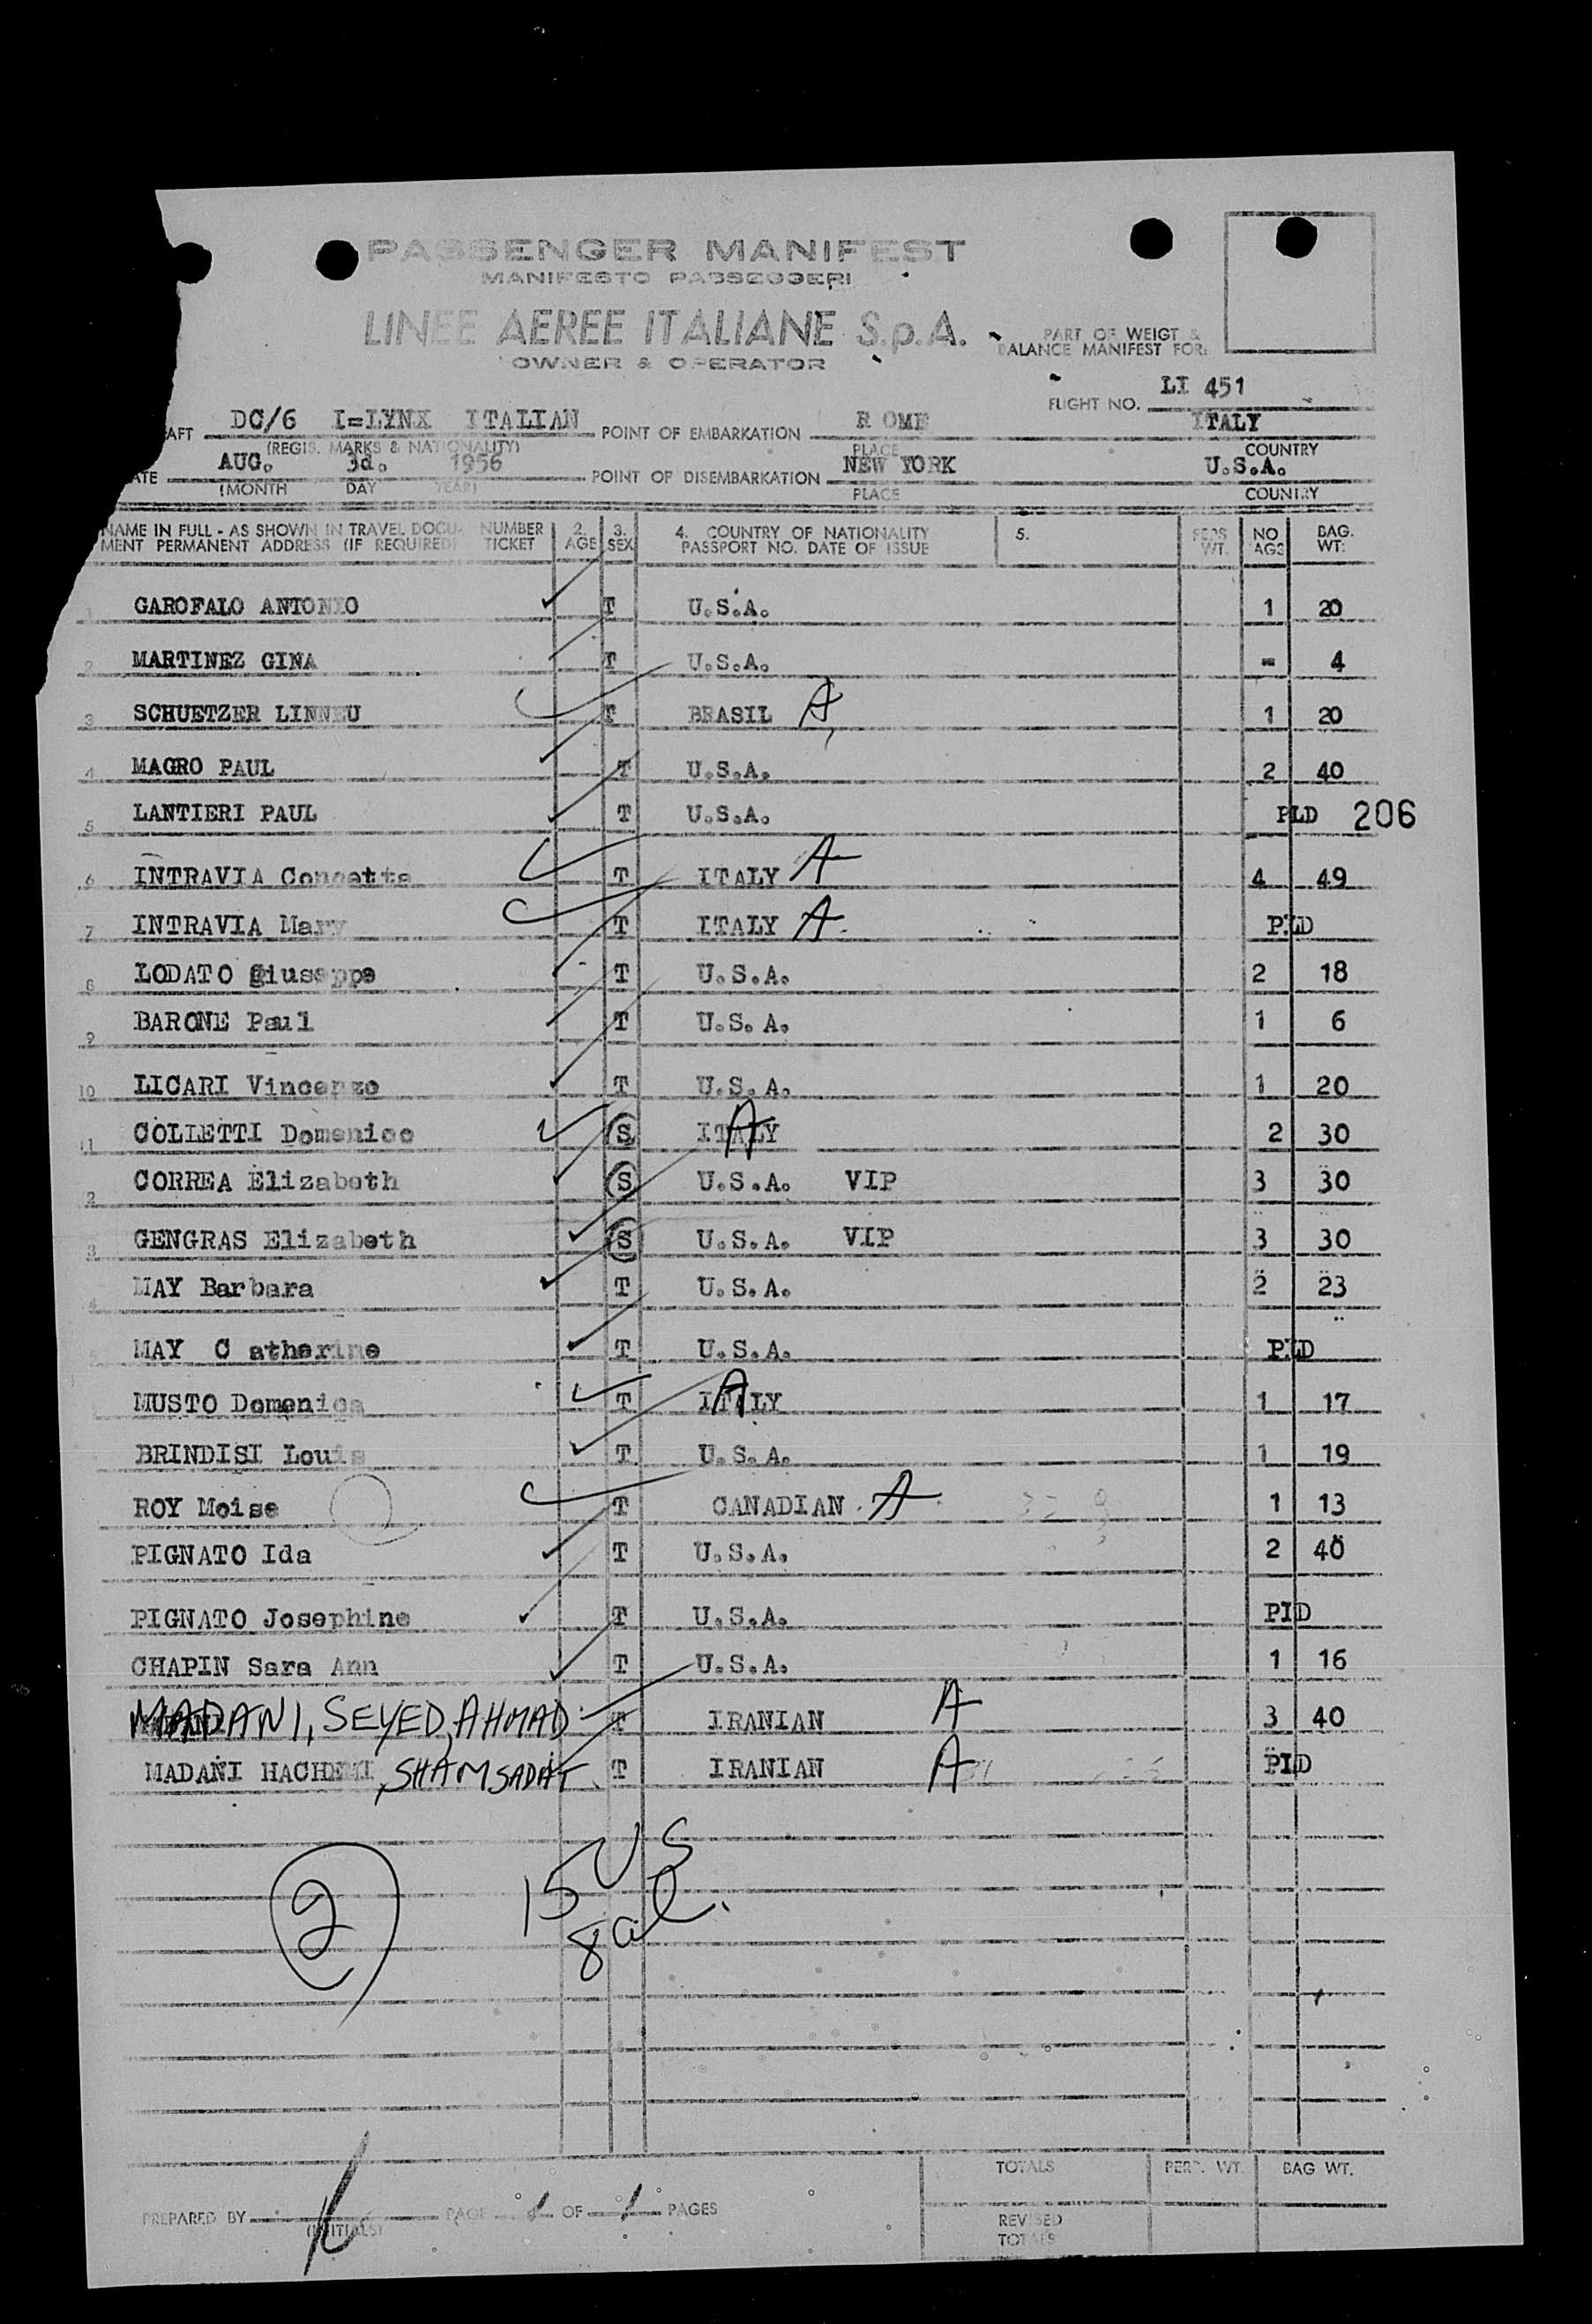 PASSENGER MANIFEST
MANIFESTO PASSEGGERI
LINEE AEREE ITALIANE S.p.A.
OWNER & OPERATOR
PART OF WEIGT &
BALANCE MANIFEST FOR:
FLIGHT NO. LI 451
AFT DC/6 I=LYNX ITALIAN POINT OF EMBARKATION ROME ITALY
(REGIS. MARKS & NATIONALITY) PLACE COUNTRY
ATE AUG. 3d. 1956 POINT OF DISEMBARKATION NEW YORK U.S.A.
(MONTH DAY YEAR) PLACE COUNTRY
NAME IN FULL - AS SHOWN IN TRAVEL DOCU- NUMBER 2. 3. 4. COUNTRY OF NATIONALITY 5. PERS NO BAG.
MENT PERMANENT ADDRESS (IF REQUIRED) TICKET AGE SEX PASSPORT NO. DATE OF ISSUE WT. AGS WT:
1 GAROFALO ANTONIO T U.S.A. 1 20
2 MARTINEZ GINA T U.S.A. - 4
3 SCHUETZER LINNEU T BRASIL A 1 20
4 MAGRO PAUL T U.S.A. 2 40
5 LANTIERI PAUL T U.S.A. PLD 206
6 INTRAVIA Concetta T ITALY A 4 49
7 INTRAVIA Mary T ITALY A PLD
8 LODATO Giuseppe T U.S.A. 2 18
9 BARONE Paul T U.S.A. 1 6
10 LICARI Vincenzo T U.S.A. 1 20
11 COLLETTI Domenico S ITALY A 2 30
2 CORREA Elizabeth S U.S.A. VIP 3 30
3 GENGRAS Elizabeth S U.S.A. VIP 3 30
4 MAY Barbara T U.S.A. 2 23
5 MAY C atherine T U.S.A. PLD
MUSTO Domenica T ITALY A 1 17
BRINDISI Louis T U.S.A. 1 19
ROY Moise T CANADIAN A 1 13
PIGNATO Ida T U.S.A. 2 40
PIGNATO Josephine T U.S.A. PLD
CHAPIN Sara Ann T U.S.A. 1 16
MADANI, SEYED AHMAD T IRANIAN A 3 40
MADANI HACHEMI, SHAMSADAT T IRANIAN A PLD
2 15 US
gal.
TOTALS PERS. WT. BAG WT.
PREPARED BY PAGE 1 OF 1 PAGES
(INITIALS) REVISED
TOTALS